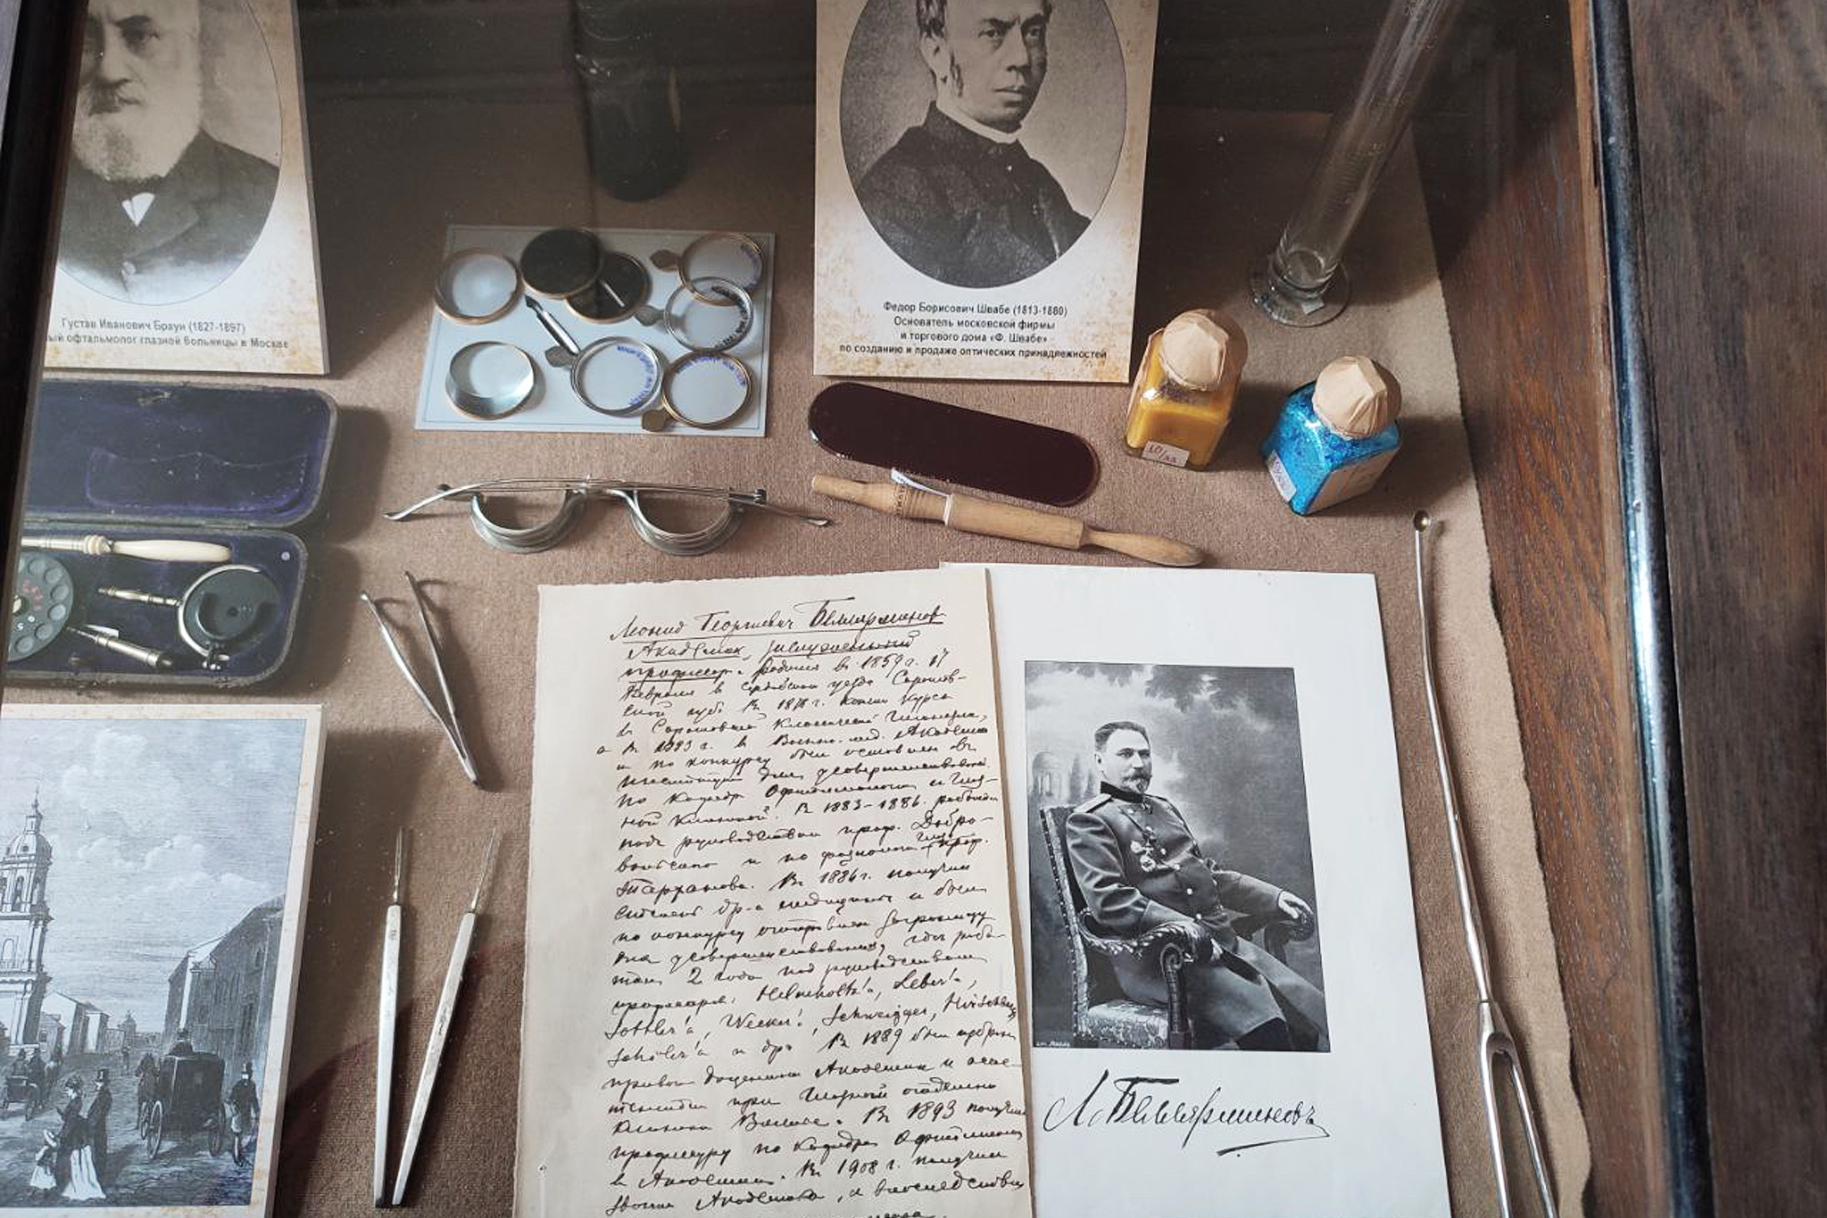 Густав Иванович Браун (1827-1897)
офтальмолог глазной больницы в Москве
Федор Борисович Швабе (1813-1880)
Основатель московской фирмы
и торгового дома «Ф. Швабе»
по созданию и продаже оптических принадлежностей
Леонид Георгиевич Беллярминов
Академик, заслуженный
профессор. Родился в 1859 г. 17
Февраля в Сердобском уезде Саратов-
ской губ. В 1878 г. кончил курс
в Саратовской Классической Гимназии,
а в 1883 г. в Военно-мед. Академии
и по конкурсу был оставлен въ
институте для усовершенствования
по Кафедре Офтальмологии и Глаз-
ной Клиникой. В 1883-1886. работал
под руководством проф. Добро-
вольского и по физиологии проф.
Тарханова. В 1886 г. получил
степень д-ра медицины и был
по конкурсу отправлен заграницу
для усовершенствования, где рабо-
тал 2 года под руководством
профессоров: Helmholtz'a, Leber'a,
Wecker, Schweigger,
Schöler'a и др. В 1889 был избран
приват доцентом Академии и
при Глазной
Клинике В 1893 получил
профессуру по Кафедре Офтальмологии
в Академии. В 1908 г. получил
звание Академика, а впоследствии
Л. Беллярминовъ